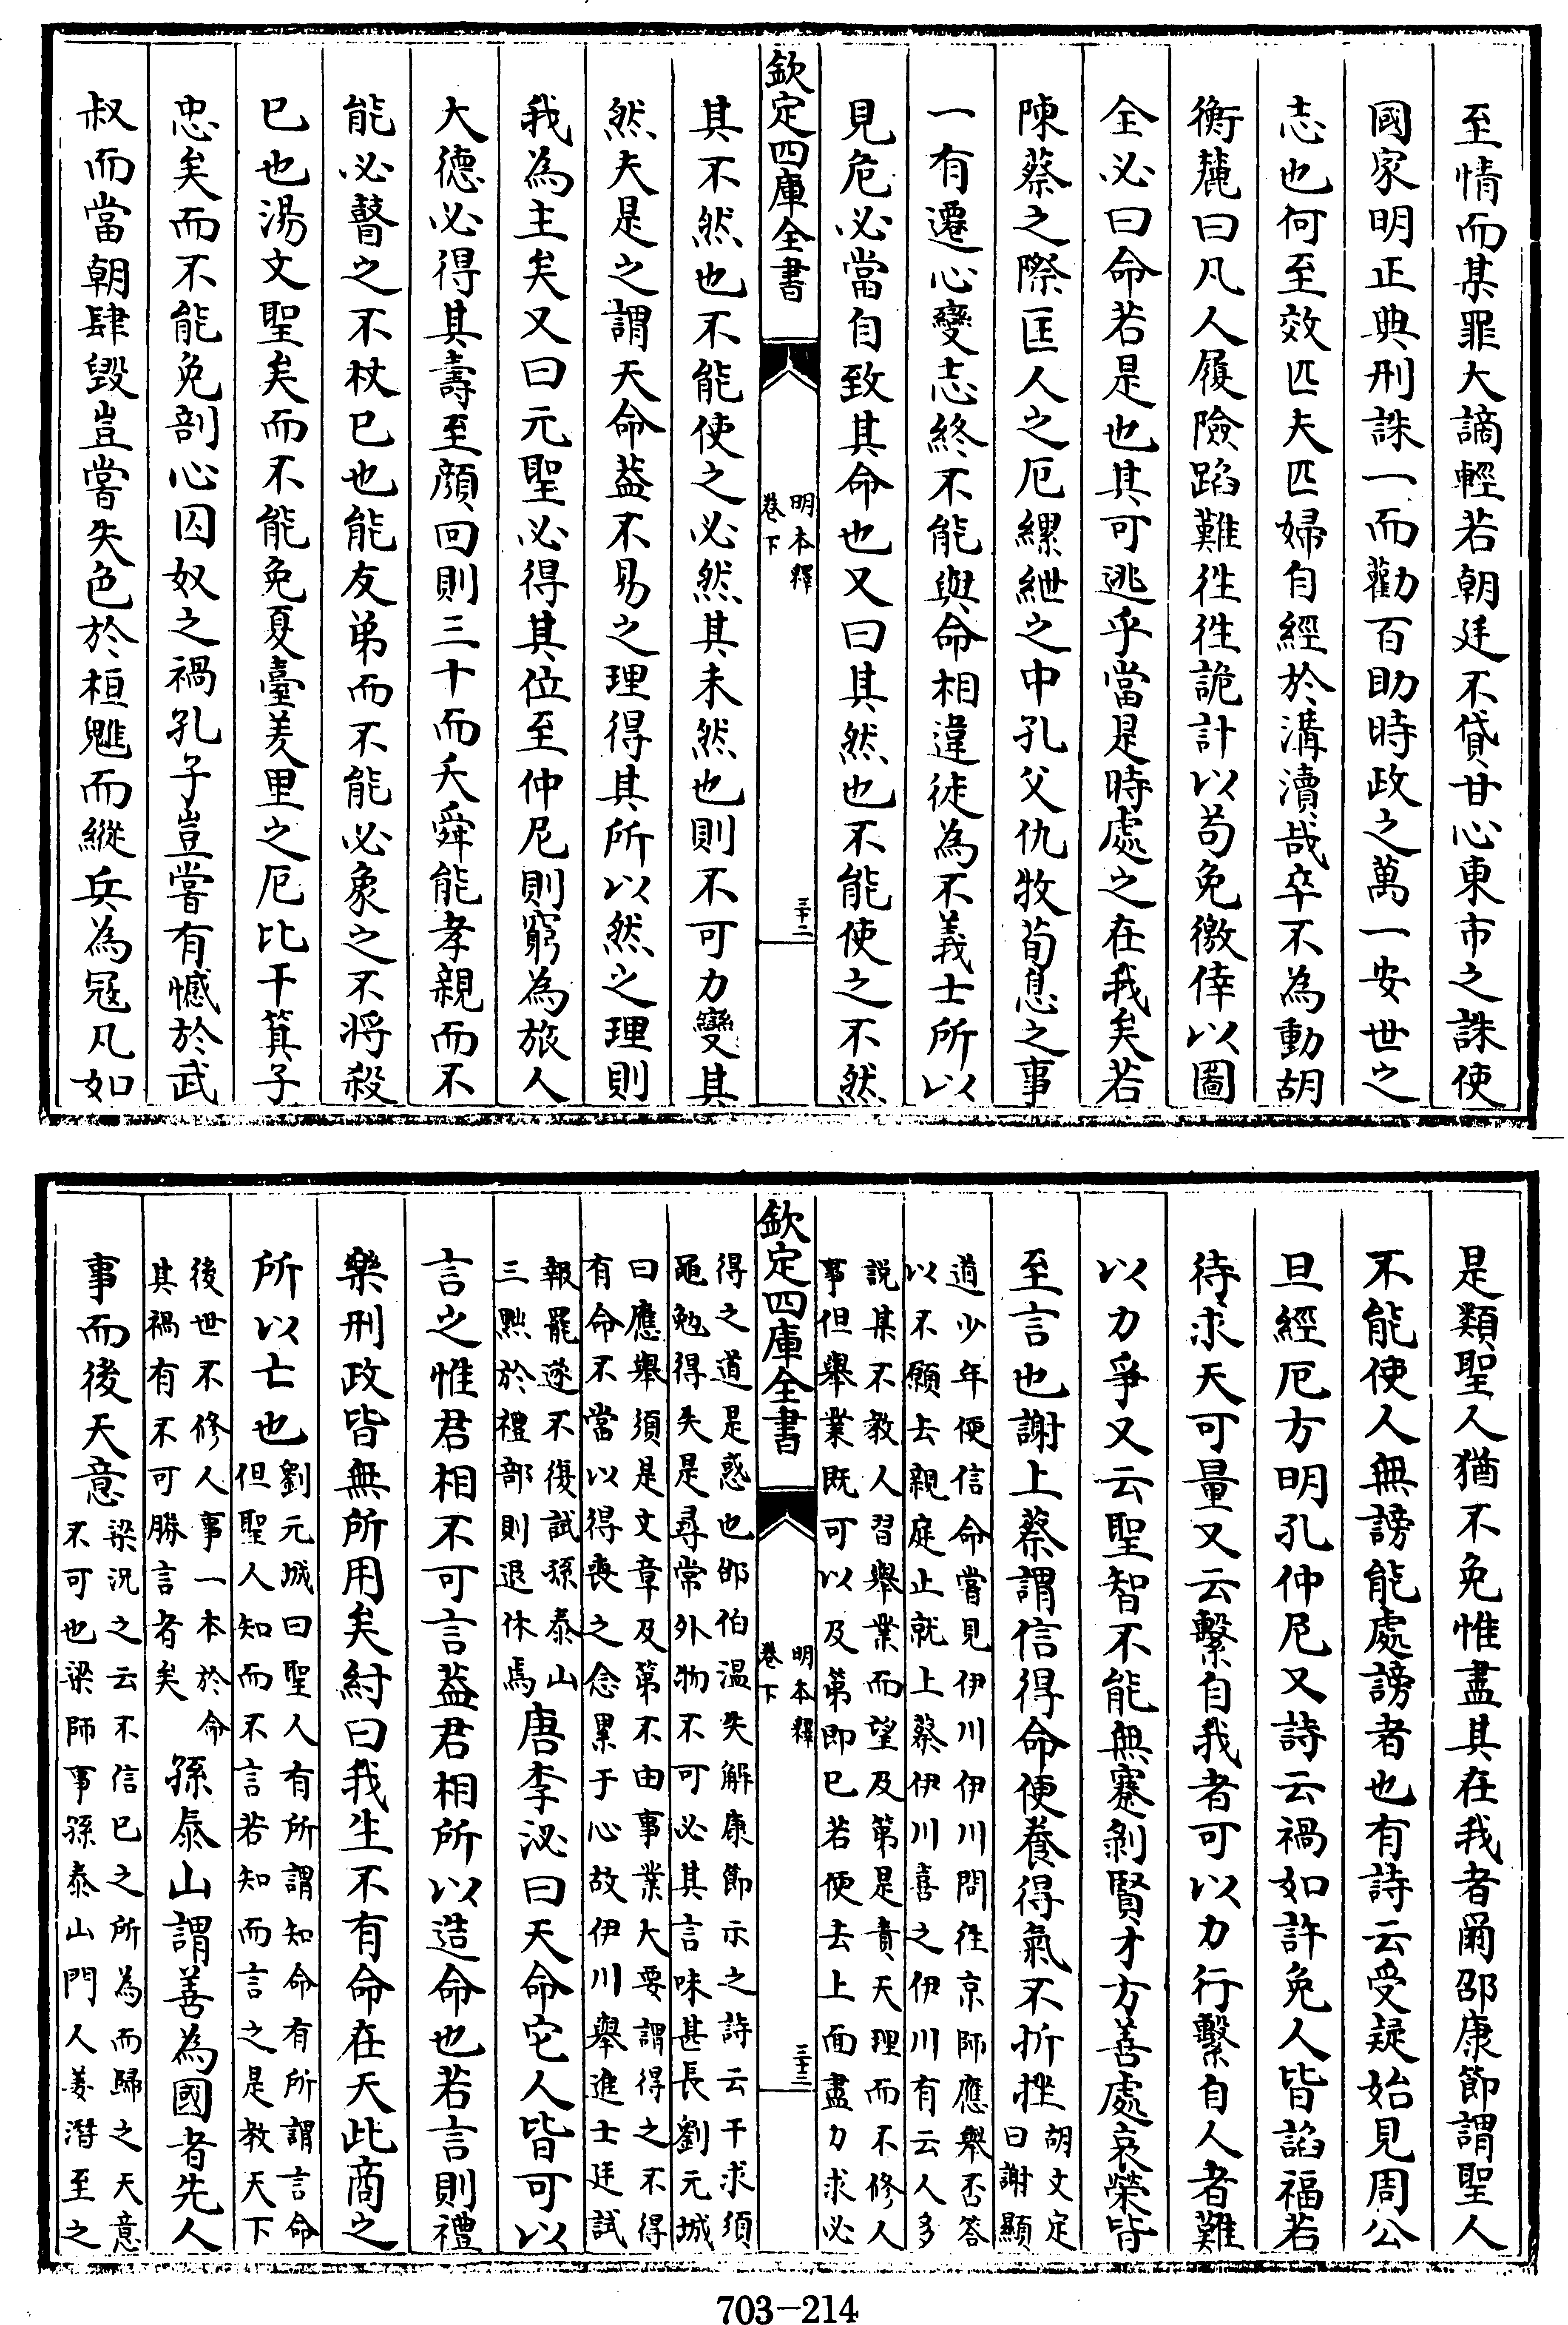 至情而某罪大謫輕若朝廷不貸甘心東市之誅使
國家明正典刑誅一而勸百助時政之萬一安世之
志也何至效匹夫匹婦自經於溝瀆哉卒不為動胡
衡麓曰凡人履險蹈難徃徃詭計以茍免徼倖以圖
全必曰命若是也其可逃乎當是時處之在我矣若
陳蔡之際匡人之厄縲紲之中孔父仇牧荀息之事
一有遷心變志終不能與命相違徒為不義士所以
見危必當自致其命也又曰其然也不能使之不然
欽定四庫全書
明本釋
卷下
三十二
其不然也不能使之必然其未然也則不可力變其
然夫是之謂天命葢不易之理得其所以然之理則
我為主矣又曰元聖必得其位至仲尼則窮為旅人
大德必得其壽至顔回則三十而夭舜能孝親而不
能必瞽之不杖已也能友弟而不能必象之不將殺
已也湯文聖矣而不能免夏臺羑里之厄比干箕子
忠矣而不能免剖心囚奴之禍孔子豈嘗有憾於武
叔而當朝肆毀豈嘗失色於桓魋而縱兵為冦凡如
是類聖人猶不免惟盡其在我者爾邵康節謂聖人
不能使人無謗能處謗者也有詩云受疑始見周公
旦經厄方明孔仲尼又詩云禍如許免人皆諂福若
待求天可量又云繫自我者可以力行繫自人者難
以力爭又云聖智不能無蹇剝賢才方善處哀榮皆
至言也謝上蔡謂信得命便養得氣不折挫胡文定
曰謝顯
道少年便信命嘗見伊川伊川問徃京師應舉否答
以不願去親庭止就上蔡伊川喜之伊川有云人多
說某不教人習舉業而望及第是責天理而不修人
事但舉業既可以及第即已若便去上面盡力求必
欽定四庫全書
明本釋
卷下
三十三
得之道是惑也邵伯温失解康節示之詩云干求須
黽勉得失是尋常外物不可必其言味甚長劉元城
曰應舉須是文章及第不由事業大要謂得之不得
有命不當以得喪之念累于心故伊川舉進士廷試
報罷遂不復試孫泰山
三黜於禮部則退休焉唐李泌曰天命它人皆可以
言之惟君相不可言葢君相所以造命也若言則禮
樂刑政皆無所用矣紂曰我生不有命在天此商之
所以亡也劉元城曰聖人有所謂知命有所謂言命
但聖人知而不言若知而言之是教天下
後世不修人事一本於命
其禍有不可勝言者矣孫泰山謂善為國者先人
事而後天意梁況之云不信已之所為而歸之天意
不可也梁師事孫泰山門人姜潛至之
703-214